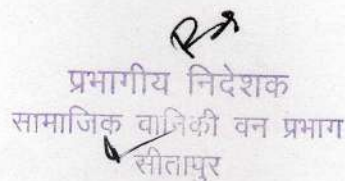 प्रभागीय निदेशक
सामाजिक वानिकी वन प्रभाग
सीतापुर